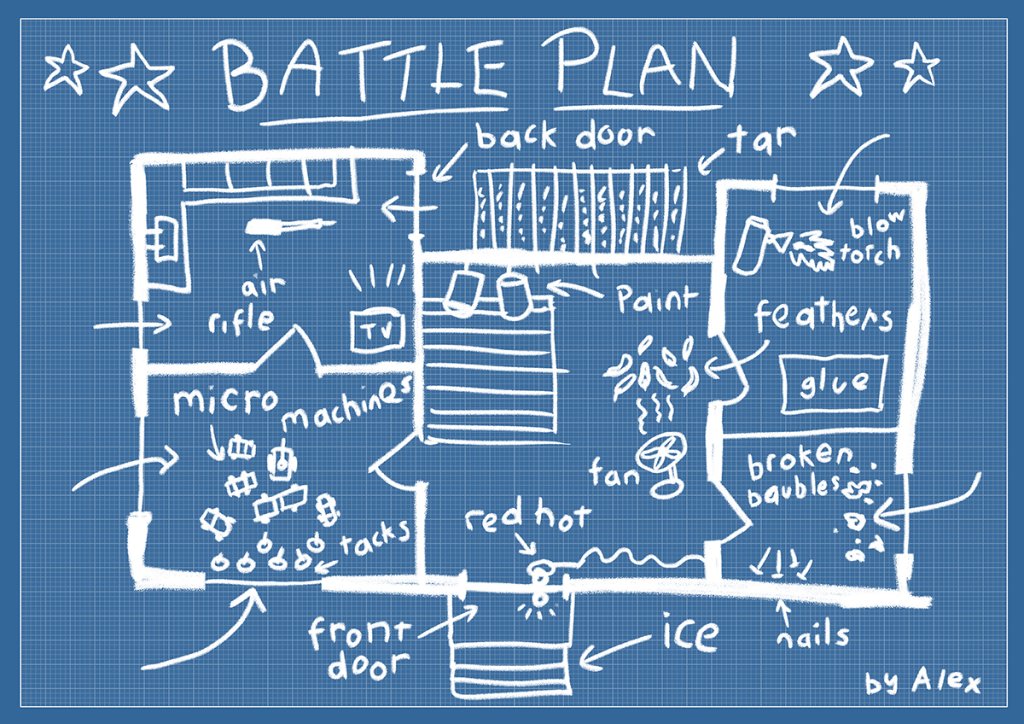 BATTLE PLAN
back door
tar
blow
torch
air
rifle
TV
Paint
feathers
glue
micro
machines
fan
broken
baubles
red hot
tacks
front
door
ice
nails
by Alex